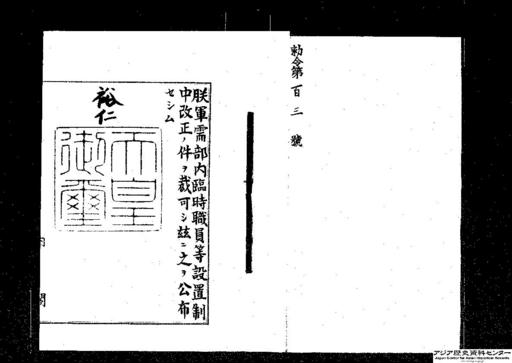 勅令第百三號
朕軍需部内臨時職員等設置制
中改正ノ件ヲ裁可シ玆ニ之ヲ公布
セシム
裕仁
天皇
御璽
内閣
アジア歴史資料センター
Japan Center for Asian Historical Records